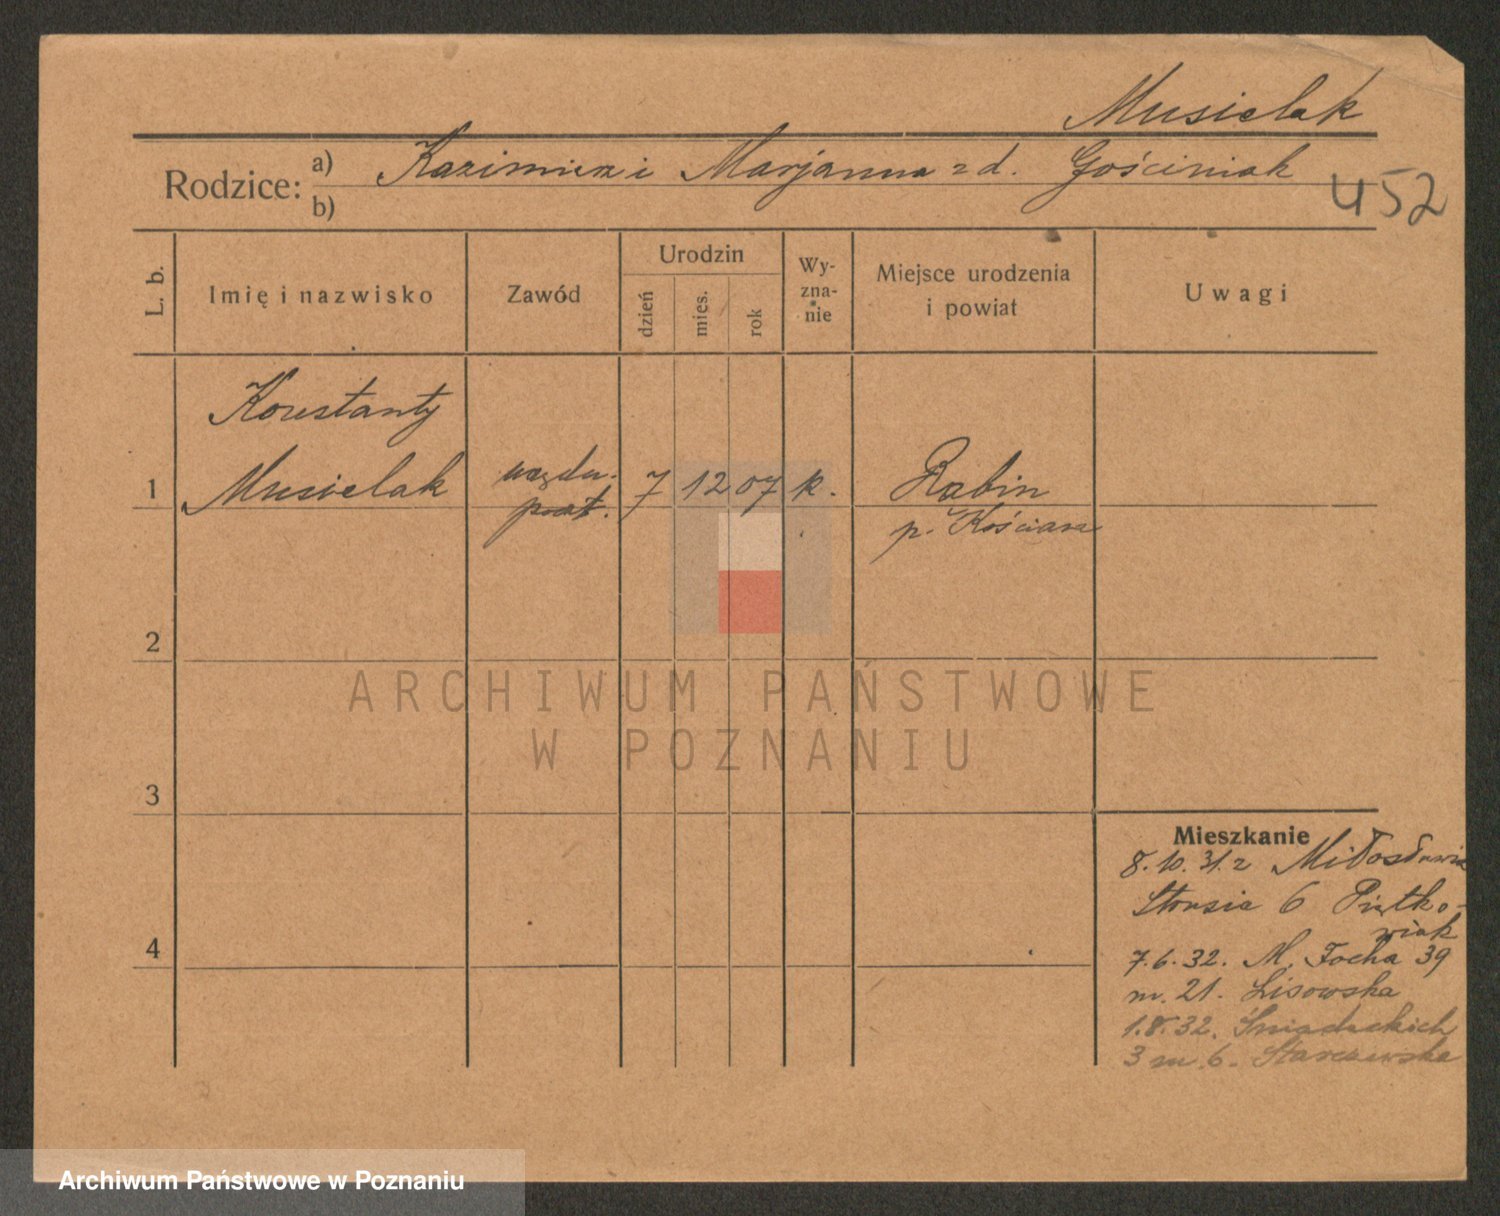 Musielak
Rodzice: a) Kazimierz i Marjanna z d. Gościniak
b)
452
L. b.
Imię i nazwisko
Zawód
Urodzin
dzień
mies.
rok
Wy-
zna-
nie
Miejsce urodzenia
i powiat
Uwagi
Konstanty
1 Musielak urzędn. 7 12 07 k. Rąbin
poczt. p. Kościana
2
3
4
ARCHIWUM PAŃSTWOWE
W POZNANIU
Mieszkanie
8.10.31. z Miłosławia
Słonsia 6 Piątko-
wiak
7.6.32. M. Focha 39
m. 21. Lisowska
1.8.32. Śniadeckich
3 m. 6. Starczewska
Archiwum Państwowe w Poznaniu